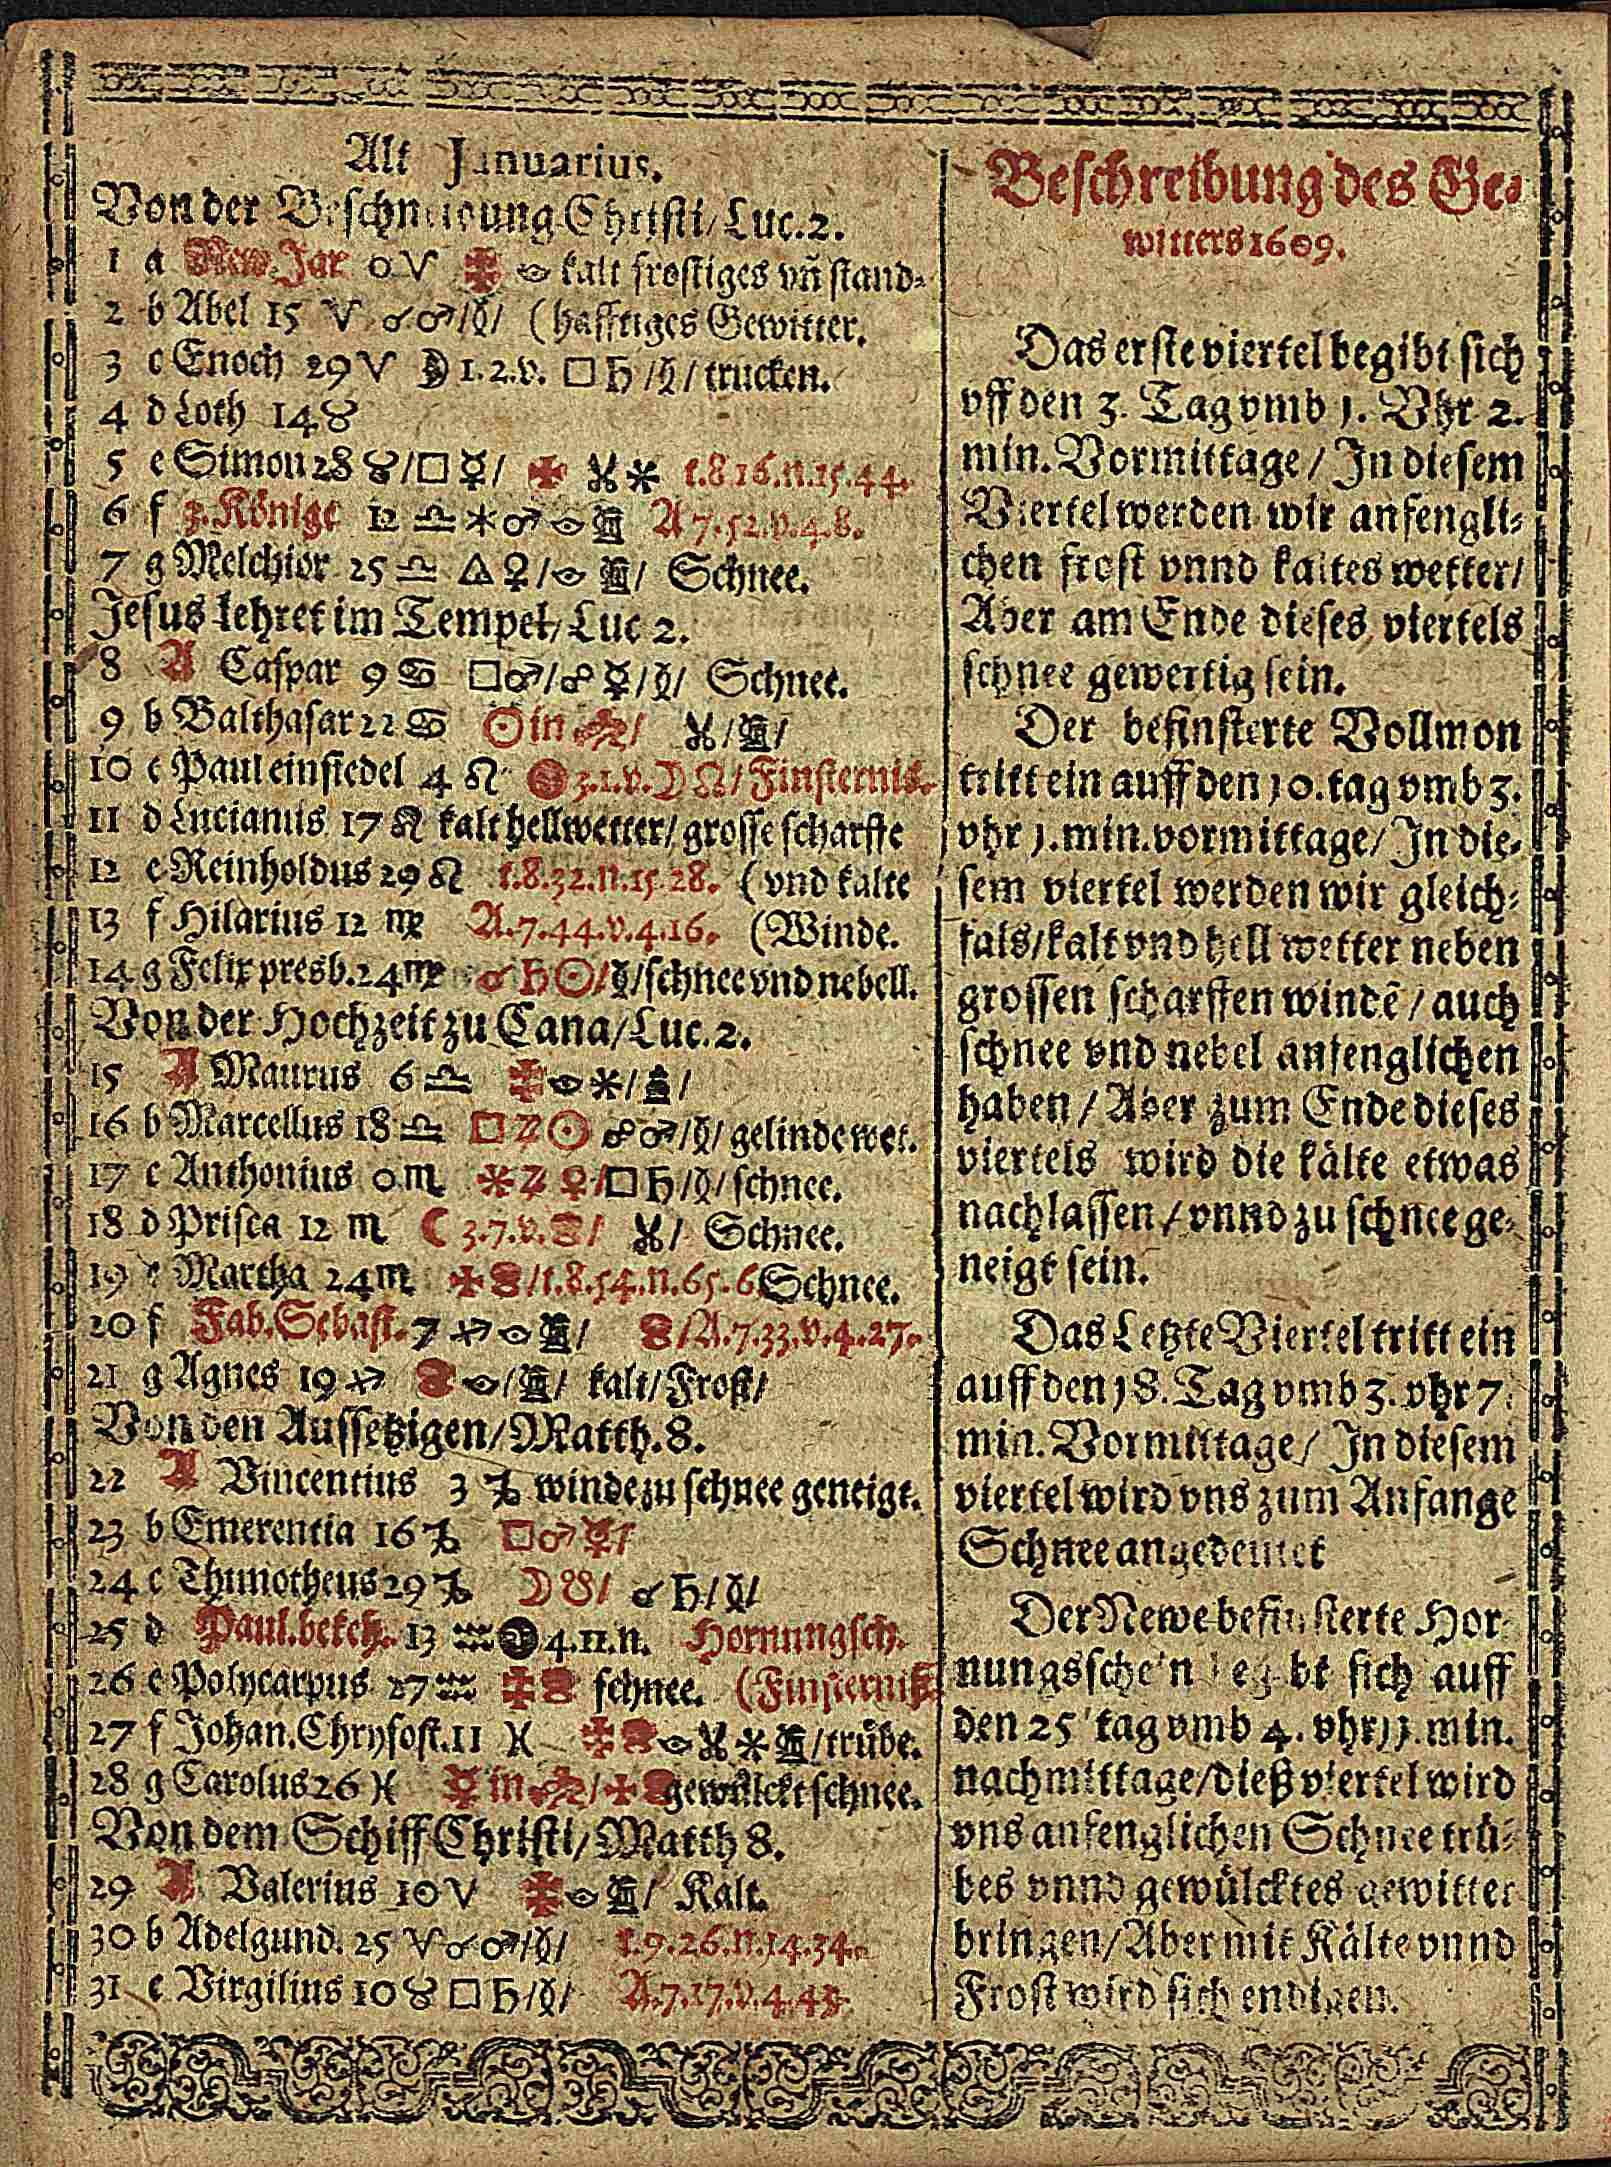 Alt Januarius.
Von der Beschneidung Christi/ Luc. 2.
1 a New Jar 0 ♈ kalt frostiges vn̄ stand-
2 b Abel 15 ♈ ☌ ♂/ / (hafftiges Gewitter.
3 c Enoch 29 ♈ 1. 2. v. □ ♄ / / trucken.
4 d Loth 14 ♉
5 e Simon 28 ♉/□ ☿/ ✠ ⚹ t. 8 16. n. 15. 44.
6 f 3. Könige 12 ♎ ⚹ ♂ A 7. 52. v. 4. 8.
7 g Melchior 25 ♎ △ ♀/ / Schnee.
Jesus lehret im Tempel/ Luc 2.
8 A Caspar 9 ♋ □ ♂/☍ ☿/ / Schnee.
9 b Balthasar 22 ♋ ☉ in / / /
10 c Paul einsiedel 4 ♌ 3. 1. v. ☽ ☊/ Finsternis.
11 d Lucianus 17 ♌ kalt hell wetter/ grosse scharffe
12 e Reinholdus 29 ♌ t. 8. 32. n. 15. 28. (vnd kalte
13 f Hilarius 12 ♍ A. 7. 44. v. 4. 16. (Winde.
14 g Felix presb. 24 ♍ ☌ ♄ ☉/ /schnee vnd nebell.
Von der Hochzeit zu Cana/ Luc. 2.
15 A Maurus 6 ♎ ⚹/ /
16 b Marcellus 18 ♎ □ ♃ ☉ ☍ ♂/ / gelinde wet.
17 c Anthonius 0 ♏ ⚹ ♃ ♀/□ ♄/ / schnee.
18 d Prisca 12 ♏ ☾ 3. 7. v. / / Schnee.
19 e Martha 24 ♏ ✠ /t. 8. 54. n. 65. 6. Schnee.
20 f Fab. Sebast. 7 ♐ / /A. 7. 33. v. 4. 27.
21 g Agnes 19 ♐ / / kalt/ Frost/
Von den Aussetzigen/ Matth. 8.
22 A Vincentius 3 ♑ winde zu schnee geneigt.
23 b Emerentia 16 ♑ □ ♂ ☿/
24 c Thimotheus 29 ♑ ☽ ☋/ ☌ ♄/ /
25 d Paul. bekeh. 13 ♒ 4. 11. n. Hornungsch.
26 e Polycarpus 27 ♒ schnee. (Finsterniß
27 f Johan. Chrysost. 11 ♓ ⚹ /trübe.
28 g Carolus 26 ♓ ☿ in / ✠ gewülckt schnee.
Von dem Schiff Christi/ Matth 8.
29 A Valerius 10 ♈ / Kalt.
30 b Adelgund. 25 ♈ ☌ ♂/ / t. 9. 26. n. 14. 34.
31 c Virgilius 10 ♉ □ ♄/ / A. 7. 17. v. 4. 43.
Beschreibung des Ge-
witters 1609.
Das erste viertel begibt sich
vff den 3. Tag vmb 1. Vhr 2.
min. Vormittage / In diesem
Viertel werden wir anfengli-
chen frost vnnd kaltes wetter/
Aber am Ende dieses viertels
schnee gewertig sein.
Der befinsterte Vollmon
tritt ein auff den 10. tag vmb 3.
vhr 1. min. vormittage/ In die-
sem viertel werden wir gleich-
fals/ kalt vnd hell wetter neben
grossen scharffen windē / auch
schnee vnd nebel anfenglichen
haben / Aber zum Ende dieses
viertels wird die kälte etwas
nachlassen / vnnd zu schnee ge-
neigt sein.
Das Letzte Viertel tritt ein
auff den 18. Tag vmb 3. vhr 7.
min. Vormittage/ In diesem
viertel wird vns zum Anfange
Schnee angedeutet
Der Newe befinsterte Hor-
nungsschein begibt sich auff
den 25 tag vmb 4. vhr 11. min.
nachmittage/ dieß viertel wird
vns anfenglichen Schnee trü-
bes vnnd gewülcktes gewitter
bringen/ Aber mit Kälte vnnd
Frost wird sich endigen.